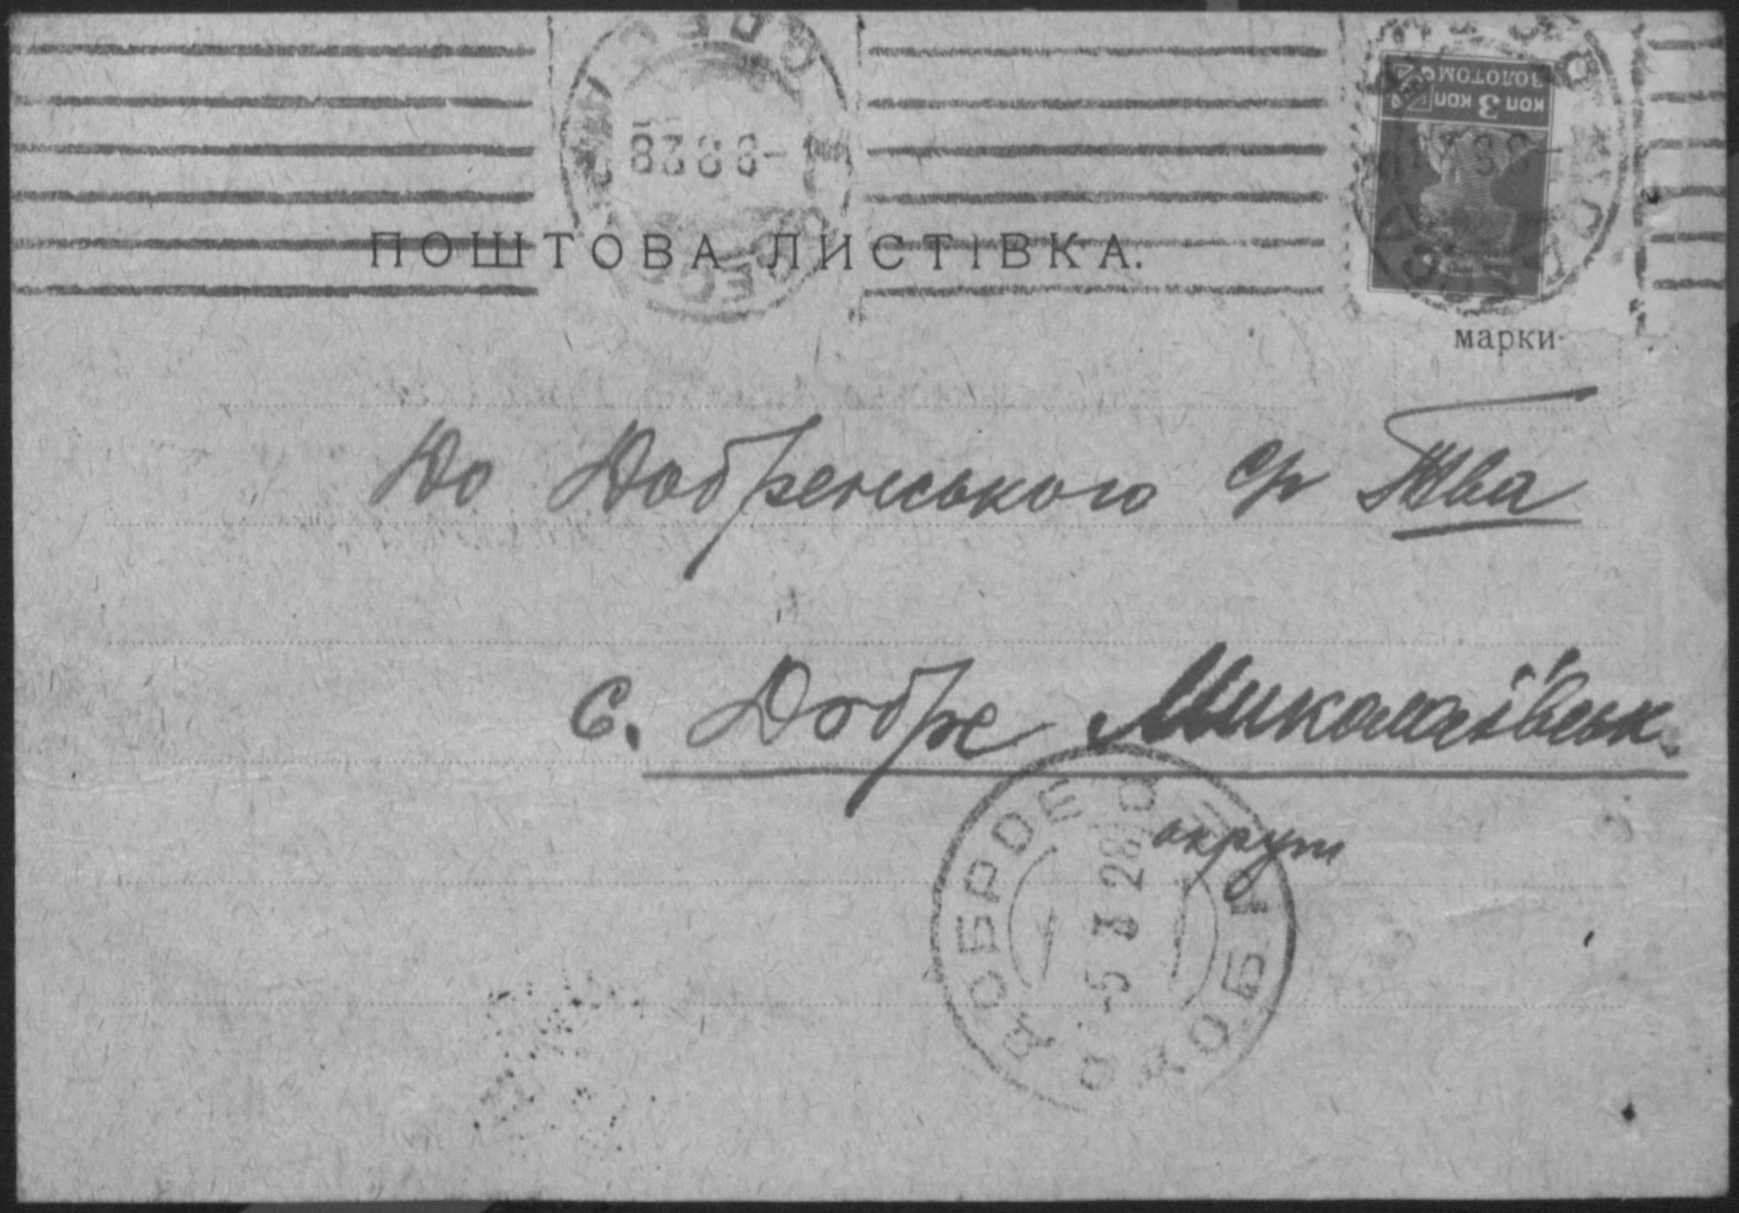 ПОШТОВА ЛИСТІВКА.
КОП 3 КОП
ЗОЛОТОМ
марки
До Добренського ср Тва
с. Добре Миколаївськ.
округи
ДОБРОЕ
-5 3 28
ДОБРЕ